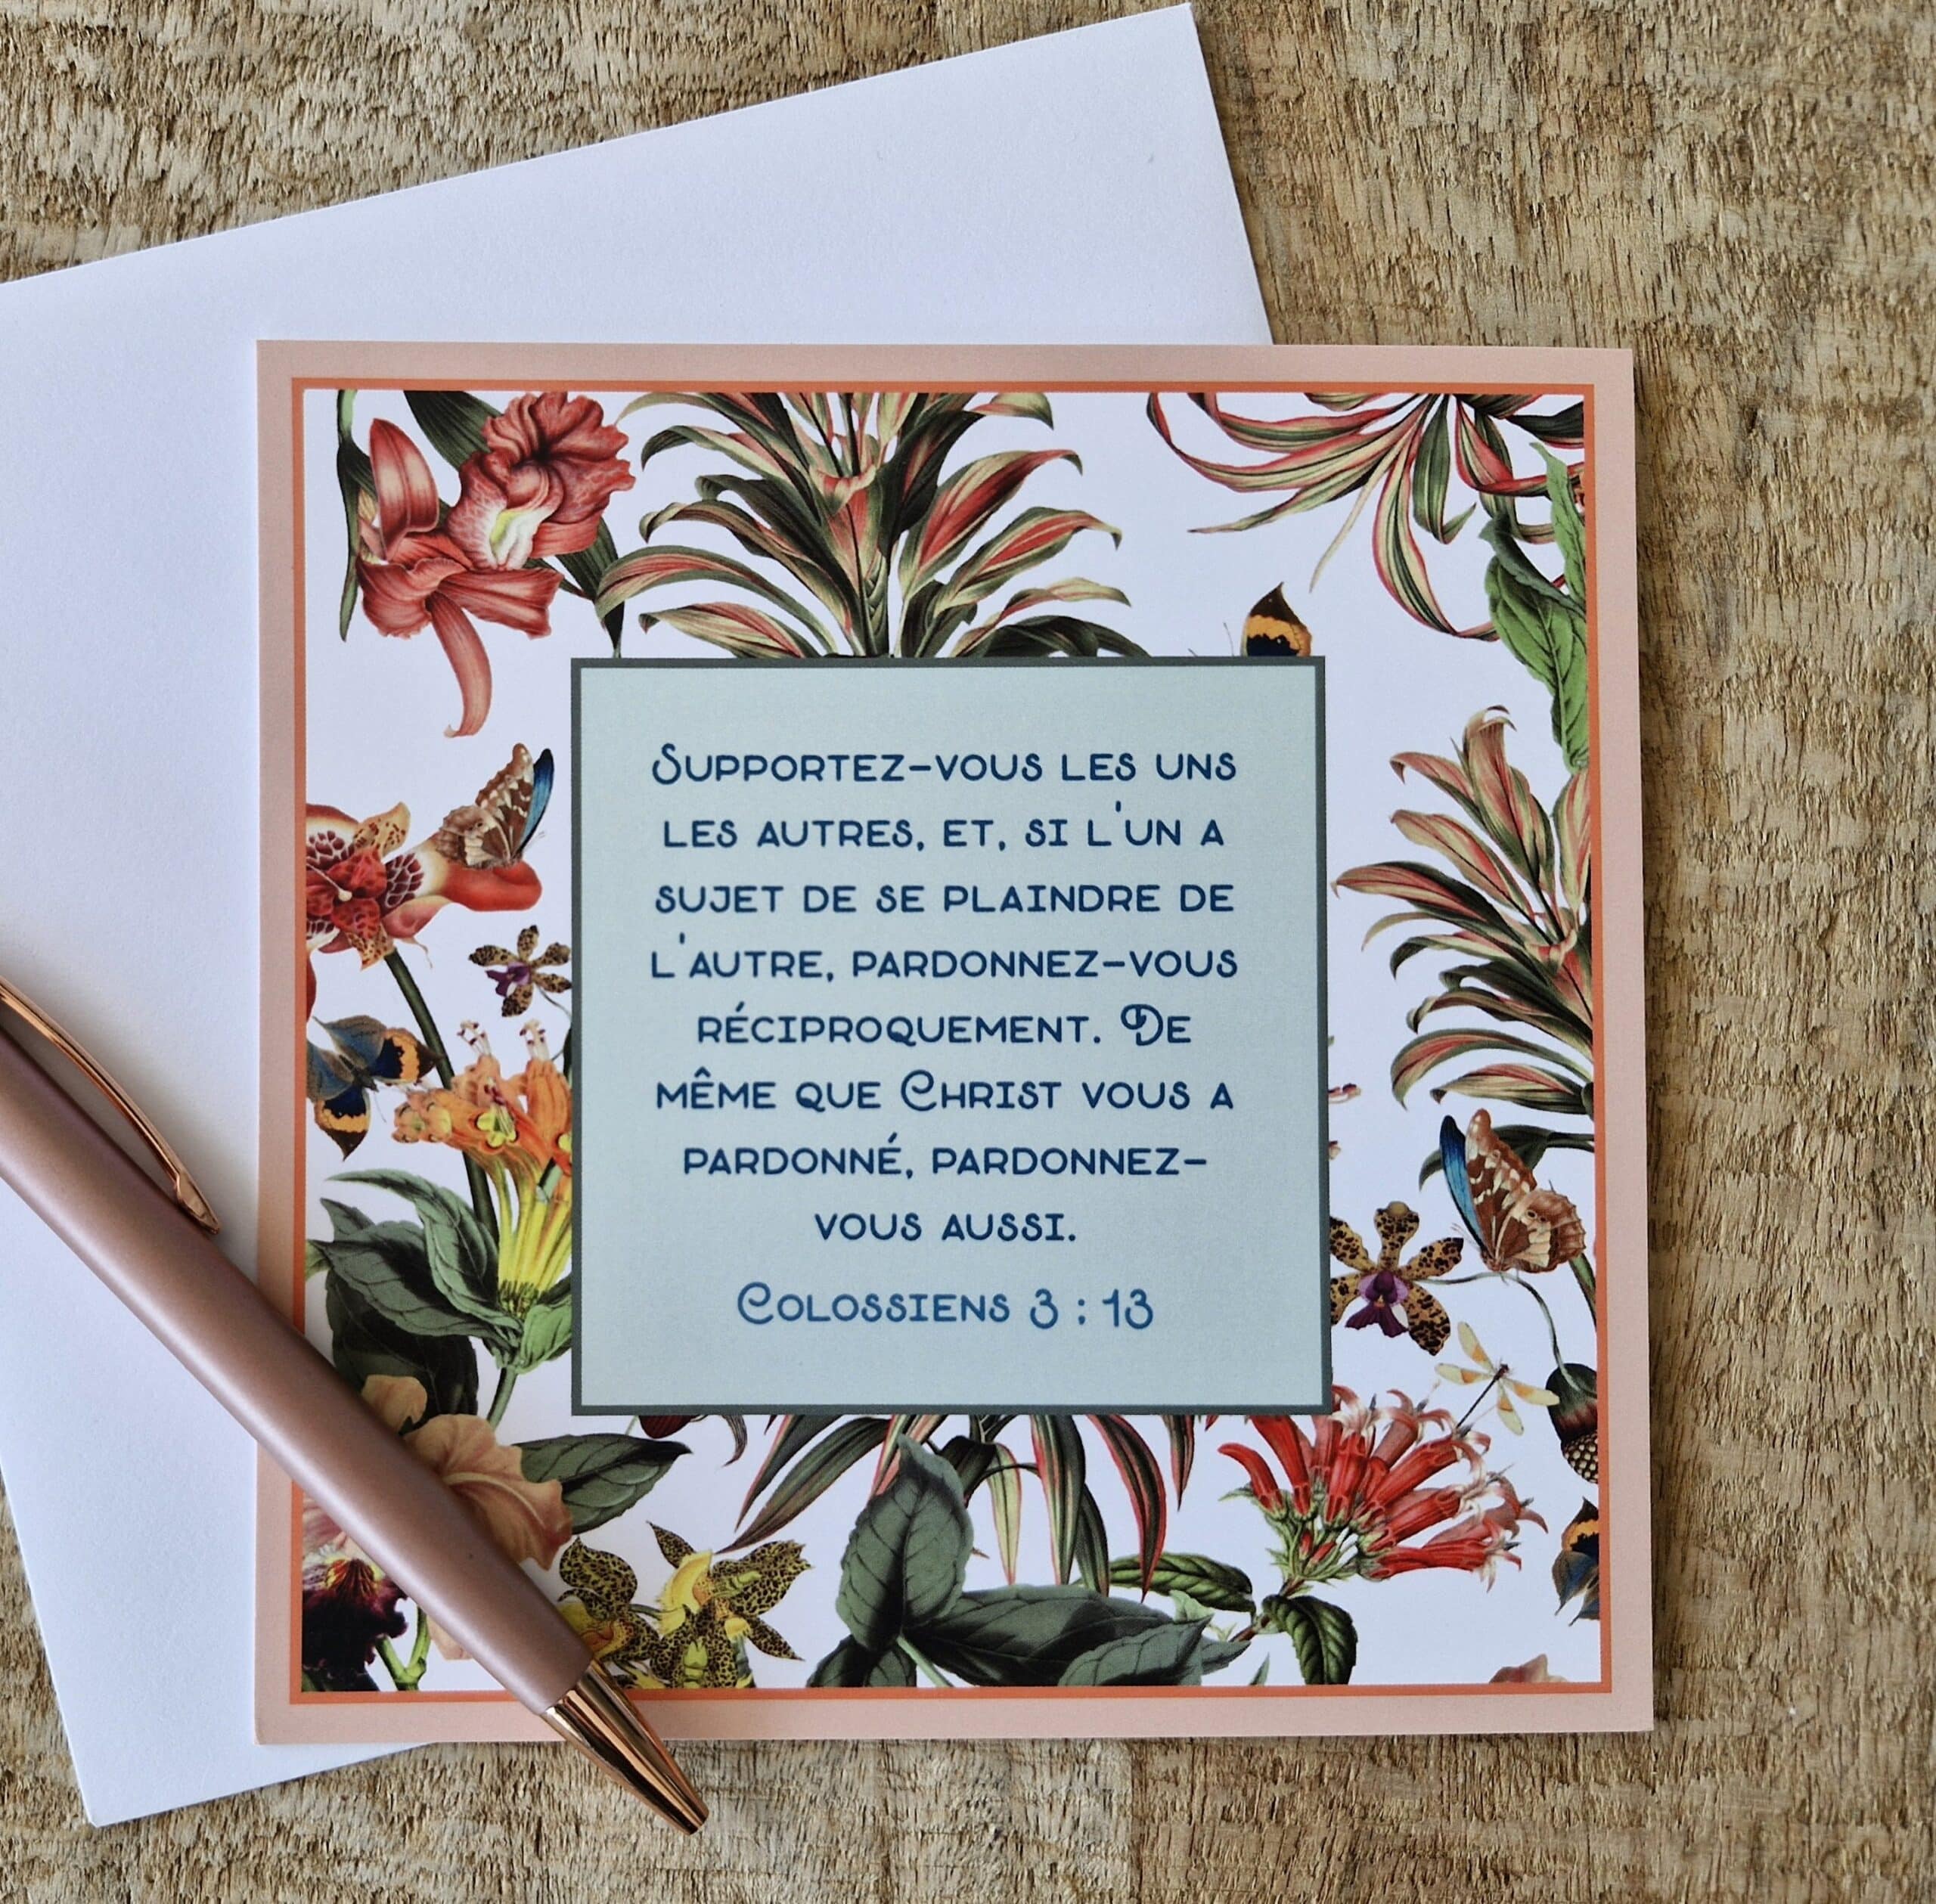 Supportez-vous les uns
les autres, et, si l'un a
sujet de se plaindre de
l'autre, pardonnez-vous
réciproquement. De
même que Christ vous a
pardonné, pardonnez-
vous aussi.
Colossiens 3 : 13